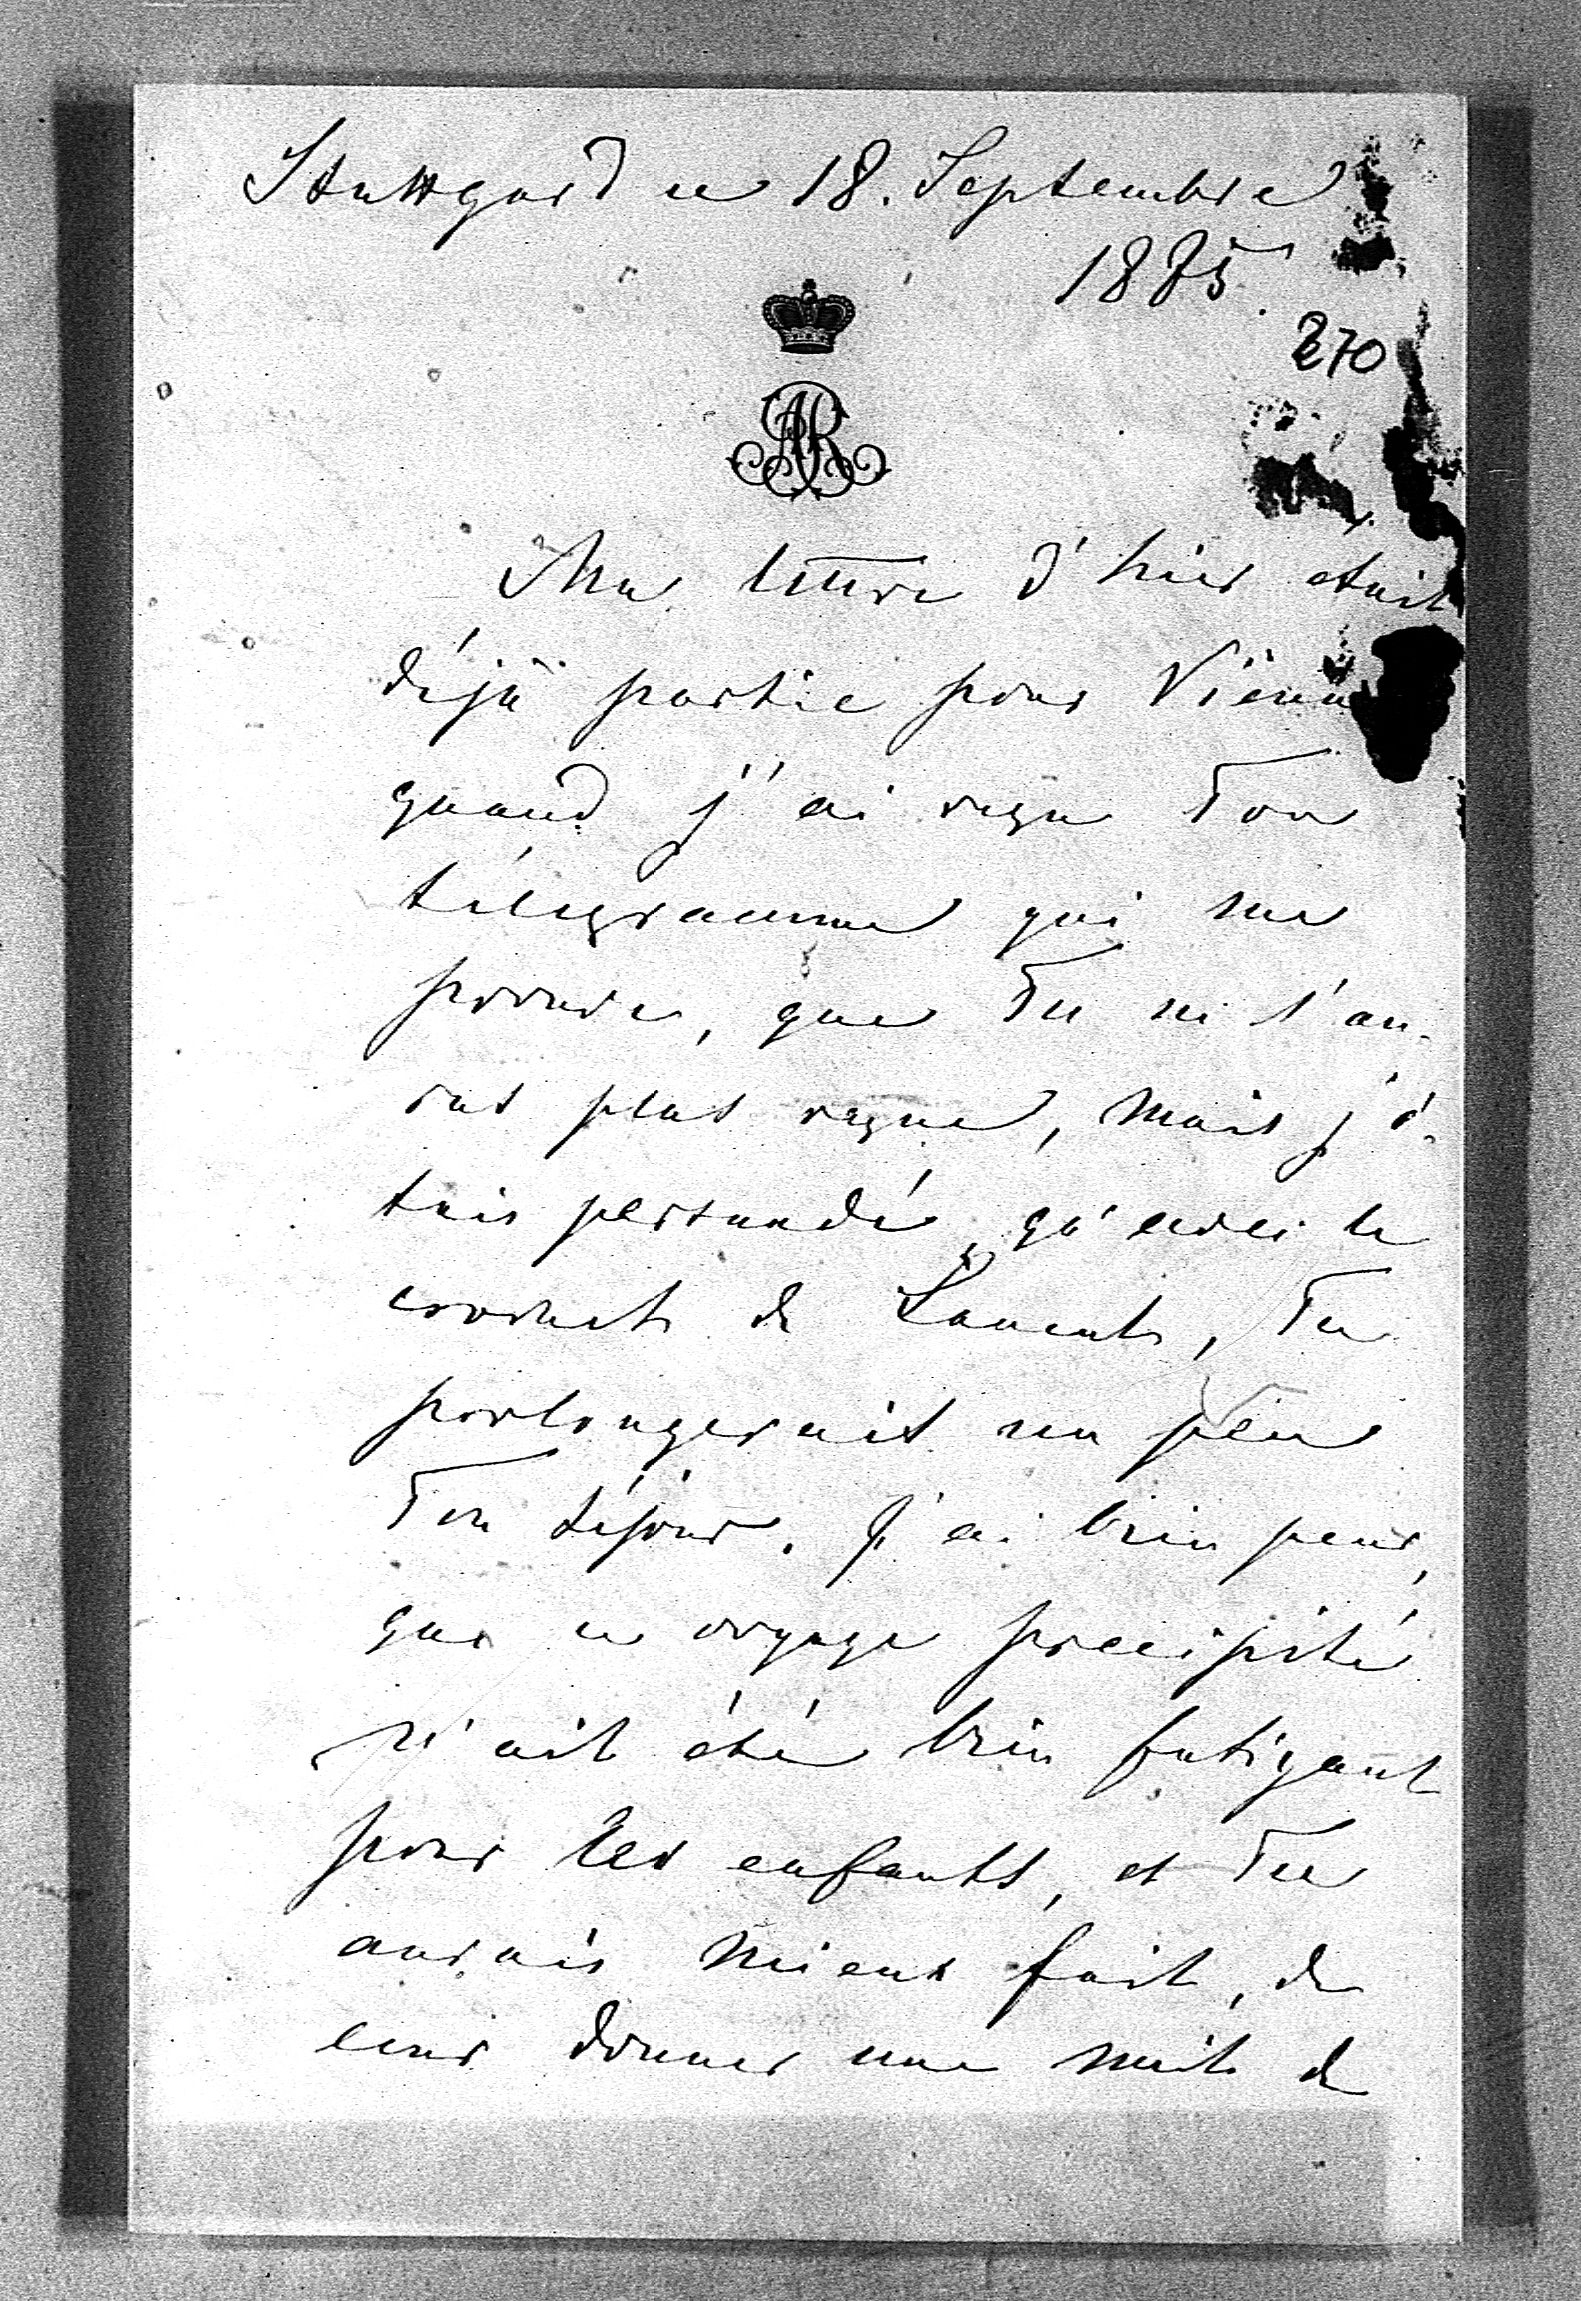 Stuttgard ce 18. Septembre
1885.
270
AR
Ma lettre d'hier était
déjà partie pour Vienne
quand j'ai reçu Ton
télégramme qui me
prouve, que Tu ne l'au-
ras plus reçue, mais j'é-
tais persuadé, qu'avec le
de Tu
prolongerais un peu
Ton séjour. J'ai bien peur,
que ce voyage precipité
n'ait été bien fatigant
pour les enfants, et Tu
aurais mieux fait, de
leur donner une nuit de